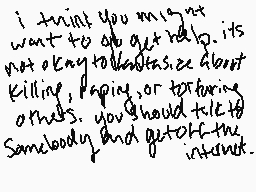 i think you might
want to go get help. its
not okay to fantasize about
killing, raping, or torturing
others. you should talk to
somebody and get off the
internet.